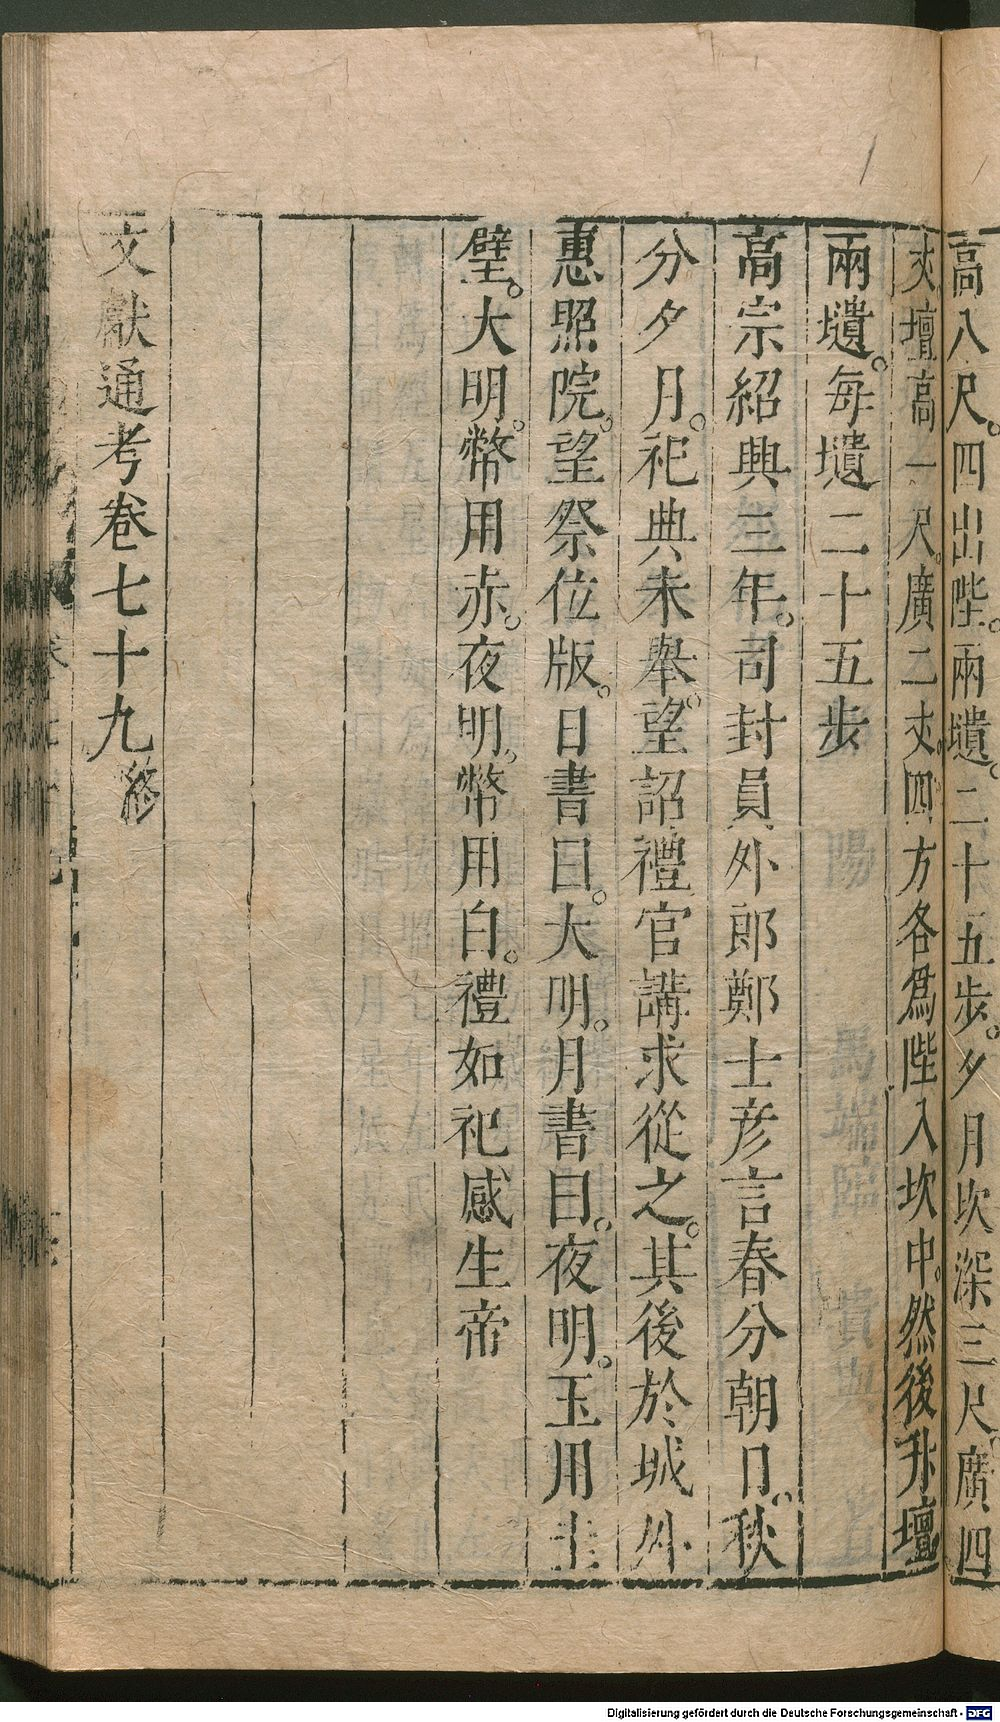 高八尺。四出陛。兩壝。二十五步。夕月坎深三尺。廣四
丈。壇高一尺。廣二丈。四方各爲陛入坎中。然後升壇
兩壝。每壝二十五步
高宗紹興三年。司封員外郎鄭士彦言春分朝日。秋
分夕月。祀典未舉。望詔禮官講求從之。其後於城外
惠照院。望祭位版。日書曰。大明。月書曰。夜明。玉用圭
璧。大明。幣用赤。夜明。幣用白。禮如祀感生帝
文獻通考卷七十九
Digitalisierung gefördert durch die Deutsche Forschungsgemeinschaft - DFG